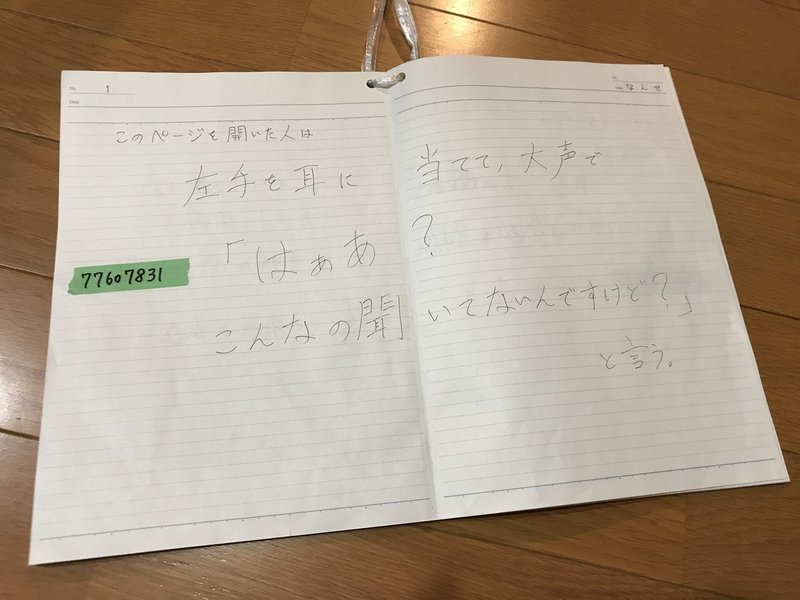 No. 1
Date
No.
なんせ
このページを開いた人は
左手を耳に当てて、大声で
「はぁあ?
77607831
こんなの聞いてないんですけど?」
と言う。